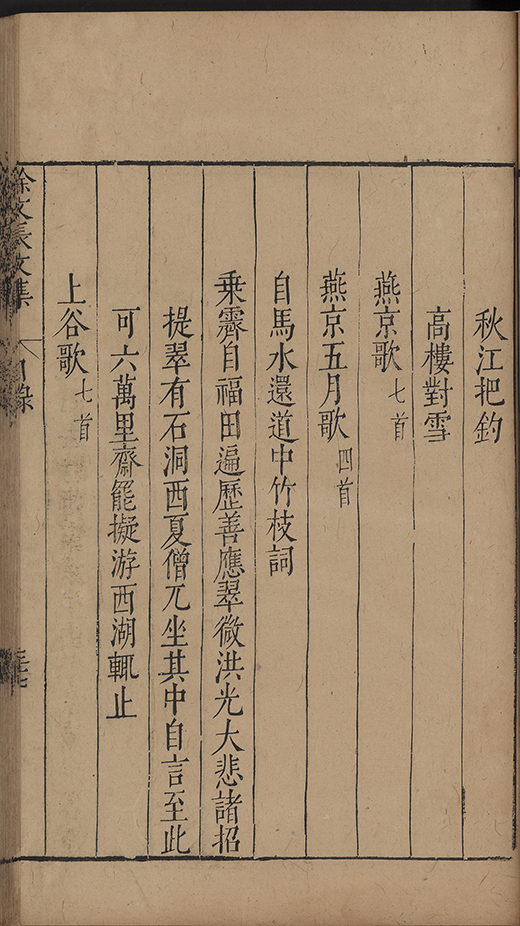 秋江把釣
高樓對雪
燕京歌 七首
燕京五月歌 四首
自馬水還道中竹枝詞
乗霽自福田遍歷善應翠微洪光大悲諸招
提翠有石洞西夏僧兀坐其中自言至此
可六萬里齋罷擬游西湖輒止
上谷歌 七首
徐文長文集 目錄